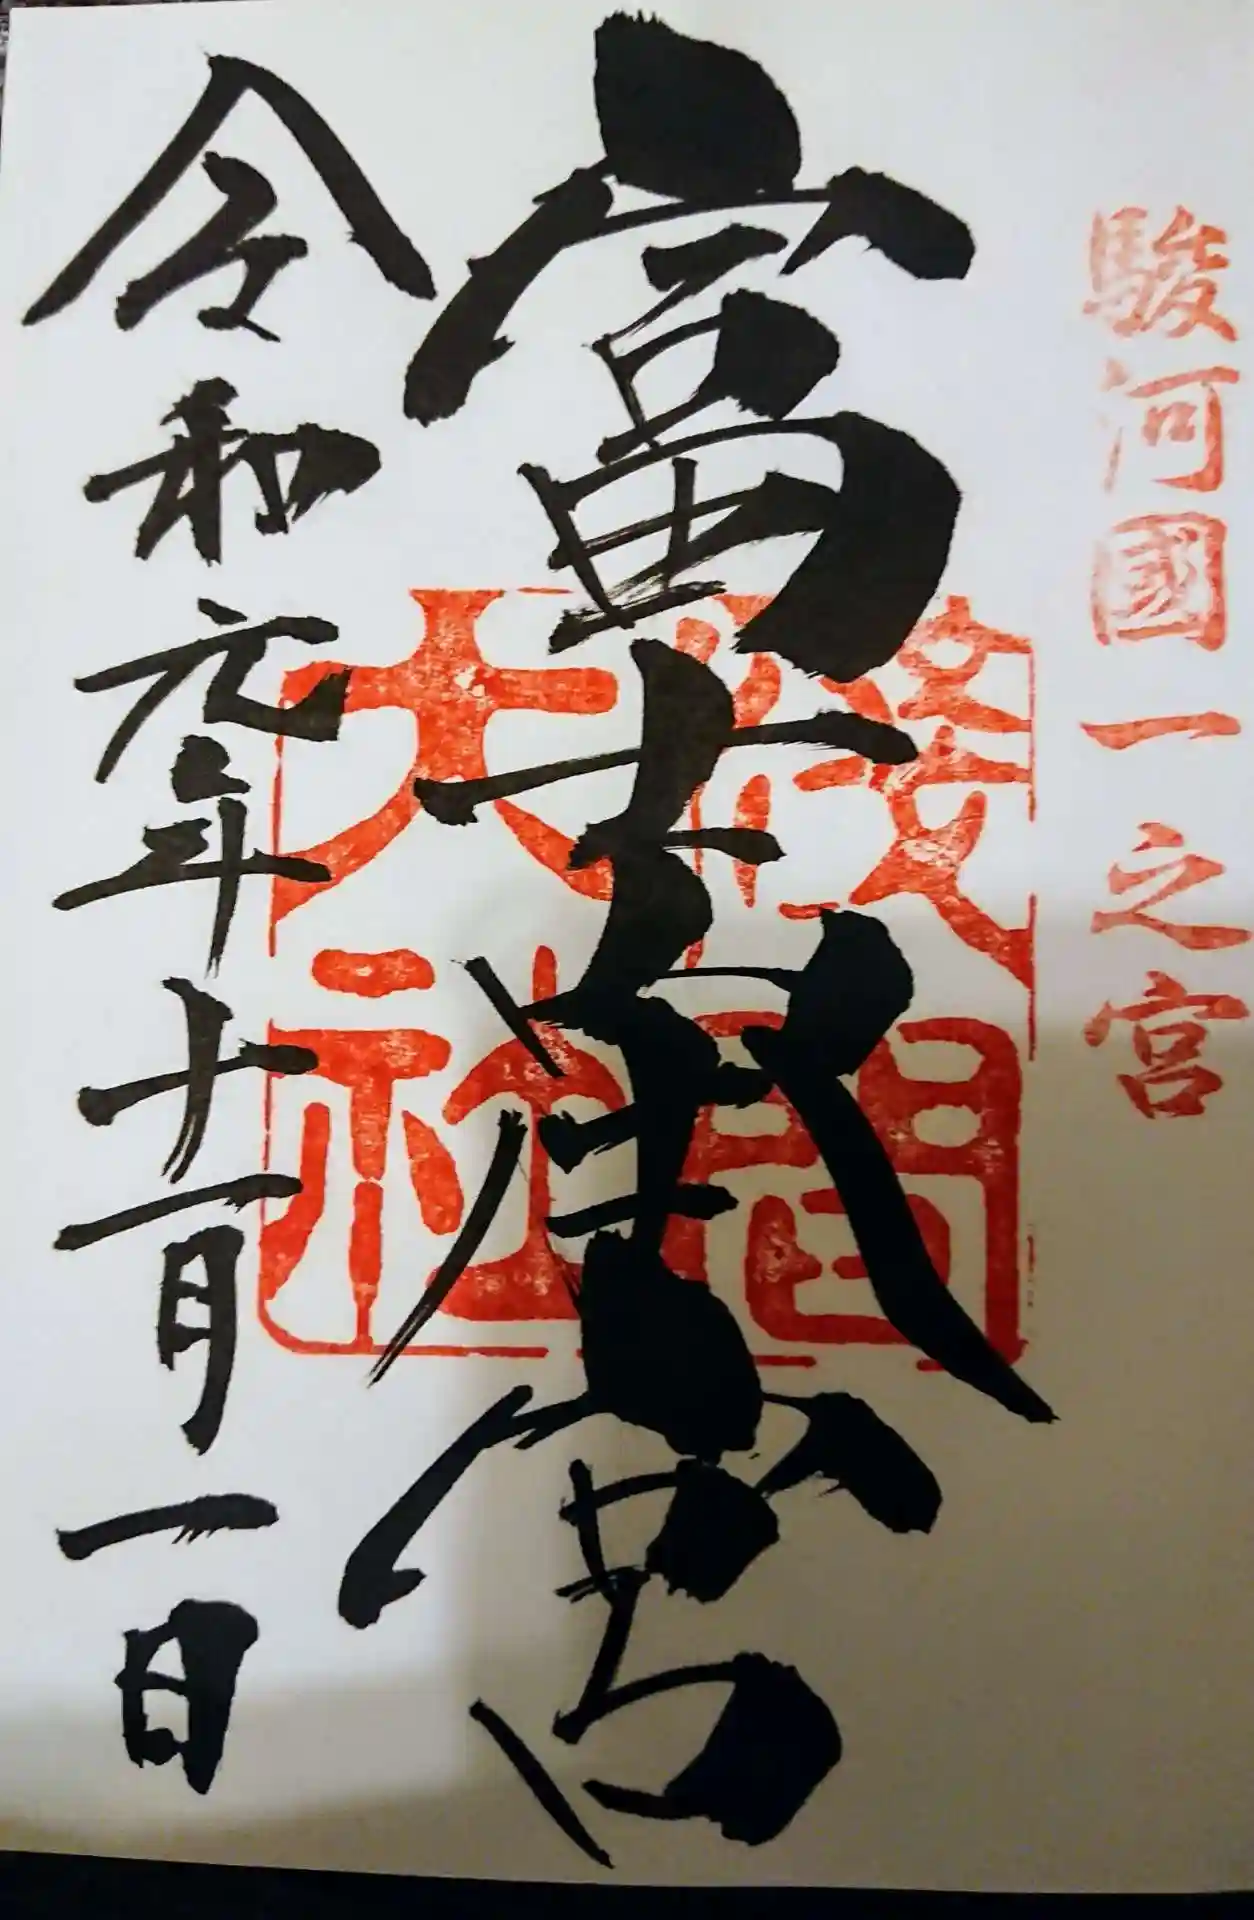 駿河國一之宮
富士宮
淺間
大社
令和元年十一月一日